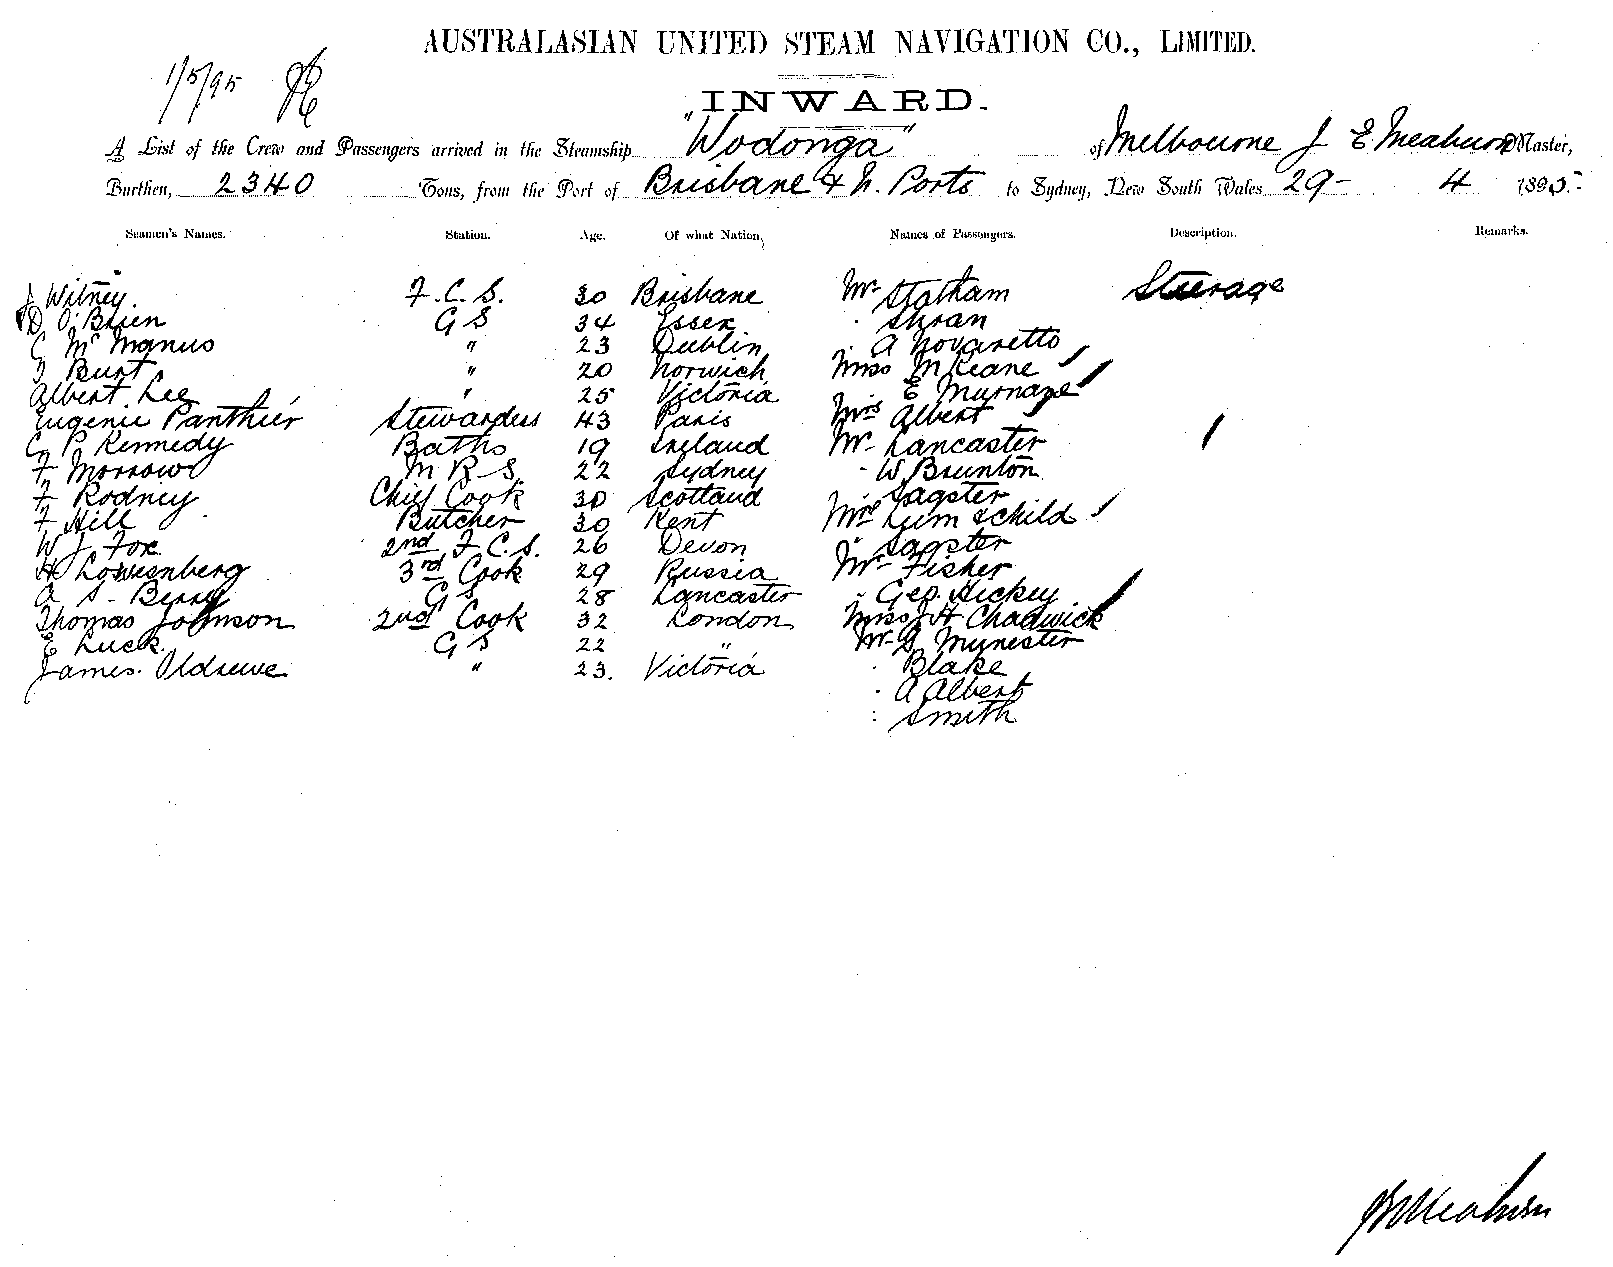 AUSTRALASIAN UNITED STEAM NAVIGATION CO., LIMITED.
1/5/95
INWARD.
A List of the Crew and Passengers arrived in the Steamship "Wodonga" of Melbourne J E Meaburn Master,
Burthen, 2340 Tons, from the Port of Brisbane & N. Ports to Sydney, New South Wales 29- 4 1895-
Seamen's Names. Station. Age. Of what Nation, Names of Passengers. Description. Remarks.
J Witney. F.C.S. 30 Brisbane Mr Statham Steerage
D O'Brien G S 34 Essex " Shran
C McManus " 23 Dublin " A Novaretto
J Burt " 20 Norwich Miss M Keane
Albert Lee " 25 Victoria E Myrnane
Eugenie Panthier Stewardess 43 Paris Mrs Albert
C P Kennedy Baths 19 Ireland Mr Lancaster
F Morrow M R S. 22 Sydney " W Brunton
F Rodney Chief Cook 30 Scotland Sagster
F Hill Butcher 30 Kent Mrs Lum & child
W J Fox 2nd F.C.S. 26 Devon " Sagster
H Lowenberg 3rd Cook 29 Russia Mr Fisher
A S- Berry G S 28 Lancaster " Geo. Hickey
Thomas Johnson 2nd Cook 32 London Miss J H Chadwick
E Luck. G S 22 " Mr G Mynester
James. Oldreive " 23. Victoria " Blake
" A Albert
" Smith
JEMeaburn